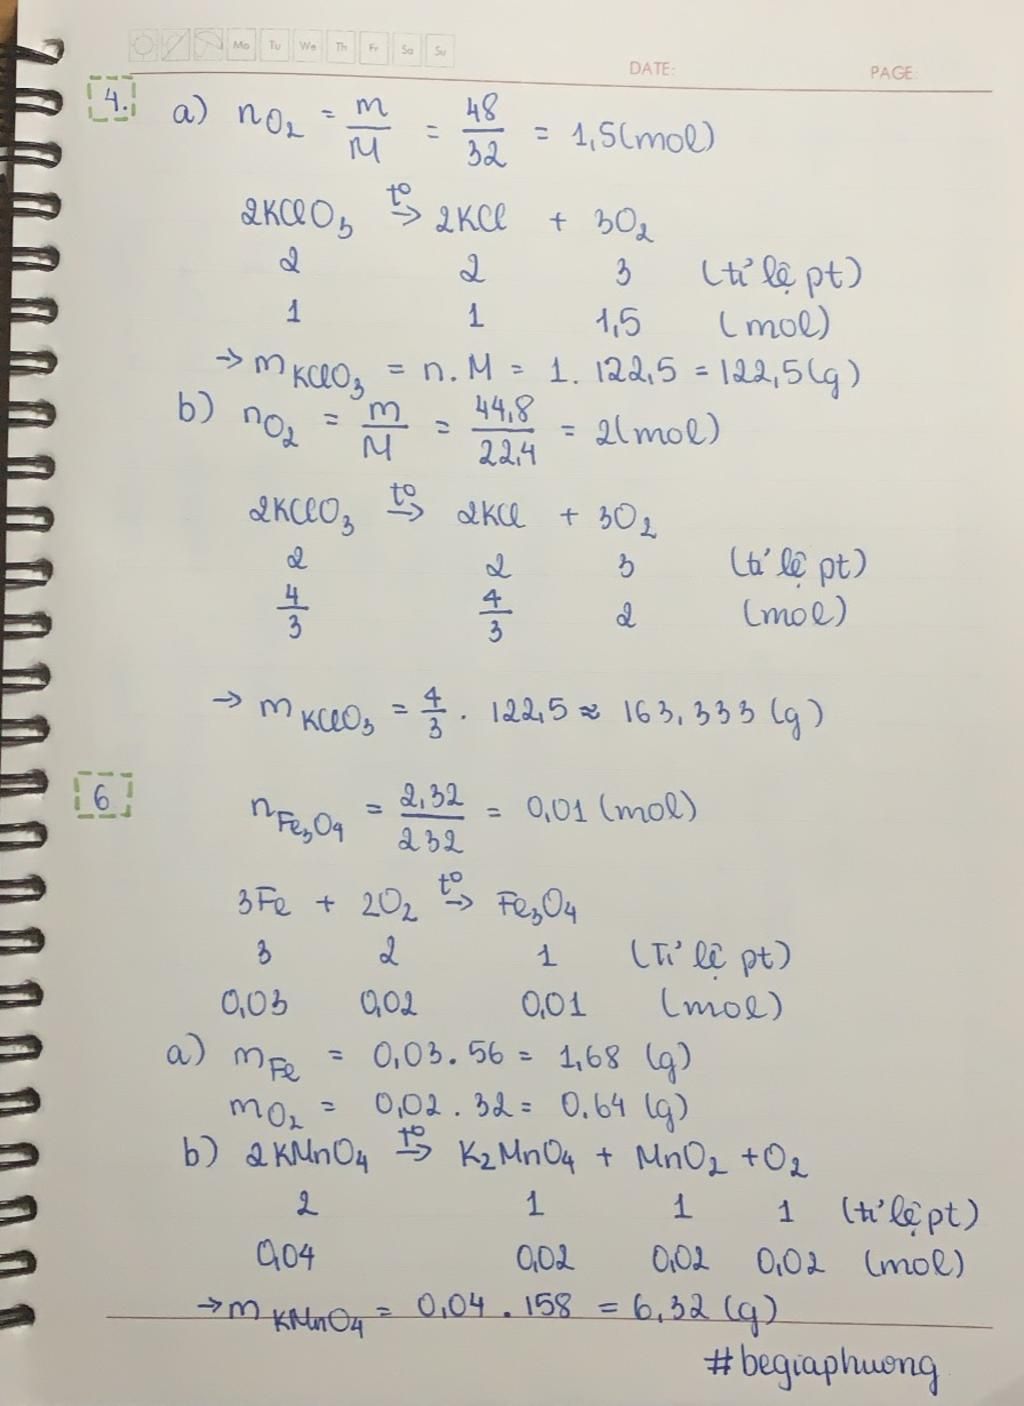 Mo Tu We Th Fr Sa Su
DATE: PAGE:
4. a) nO₂ = m/M = 48/32 = 1,5(mol)
2KClO₃ t⁰→ 2KCl + 3O₂
2 2 3 (tỉ lệ pt)
1 1 1,5 (mol)
→ m KClO₃ = n.M = 1. 122,5 = 122,5(g)
b) nO₂ = m/M = 44,8/22,4 = 2(mol)
2KClO₃ t⁰→ 2KCl + 3O₂
2 2 3 (tỉ lệ pt)
4/3 4/3 2 (mol)
→ m KClO₃ = 4/3 . 122,5 ≈ 163,333 (g)
6 nFe₃O₄ = 2,32/232 = 0,01 (mol)
3Fe + 2O₂ t⁰→ Fe₃O₄
3 2 1 (Tỉ lệ pt)
0,03 0,02 0,01 (mol)
a) mFe = 0,03.56 = 1,68 (g)
mO₂ = 0,02 . 32 = 0.64 (g)
b) 2KMnO₄ t⁰→ K₂MnO₄ + MnO₂ + O₂
2 1 1 1 (tỉ lệ pt)
0,04 0,02 0,02 0,02 (mol)
→ m KMnO₄ = 0,04 . 158 = 6,32 (g)
#begiaphuong